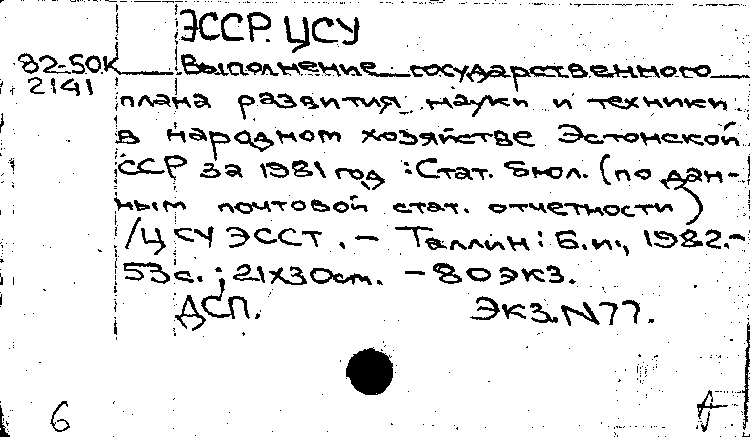 ЭССР. ЦСУ
82-50К Выполнение государственного
2141 плана развития науки и техники
в народном хозяйстве Эстонской
ССР за 1981 год : Стат. бюл. (по дан-
ным почтовой стат. отчетности)
/ЦСУ ЭССТ. – Таллин : Б.и., 1982.-
53 с. ; 21х30 ст. – 80 экз.
ДСП. Экз. N77.
6